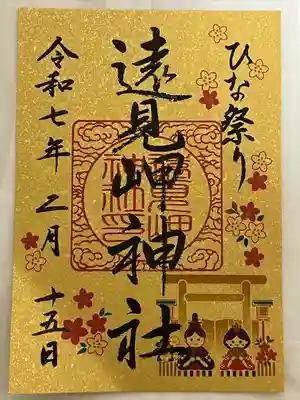 ひな祭り
遠見岬神社
令和七年 二月 十五日